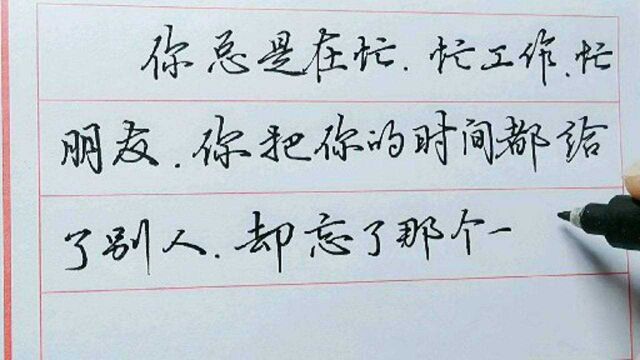 你总是在忙.忙工作.忙
朋友.你把你的时间都给
了别人.却忘了那个一